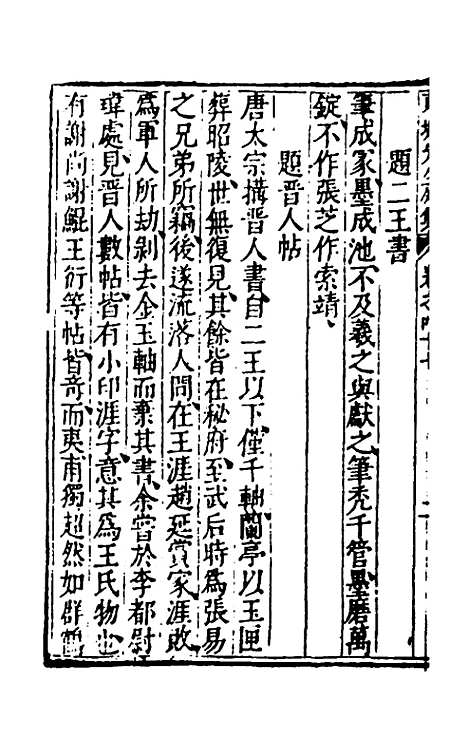 題二王書
筆成冢墨成池不及羲之與獻之筆秃千管墨磨萬
錠不作張芝作索靖
題晉人帖
唐太宗搆晉人書自二王以下僅千軸蘭亭以玉匣
葬昭陵世無復見其餘皆在秘府至武后時爲張易
之兄弟所竊後遂流落人間在王涯趙延賞家涯敗
爲軍人所劫剝去金玉軸而棄其書余嘗於李都尉
瑋處見晉人數帖皆有小印涯字意其爲王氏物也
有謝尚謝鯤王衍等帖皆奇而夷甫獨超然如群鶴